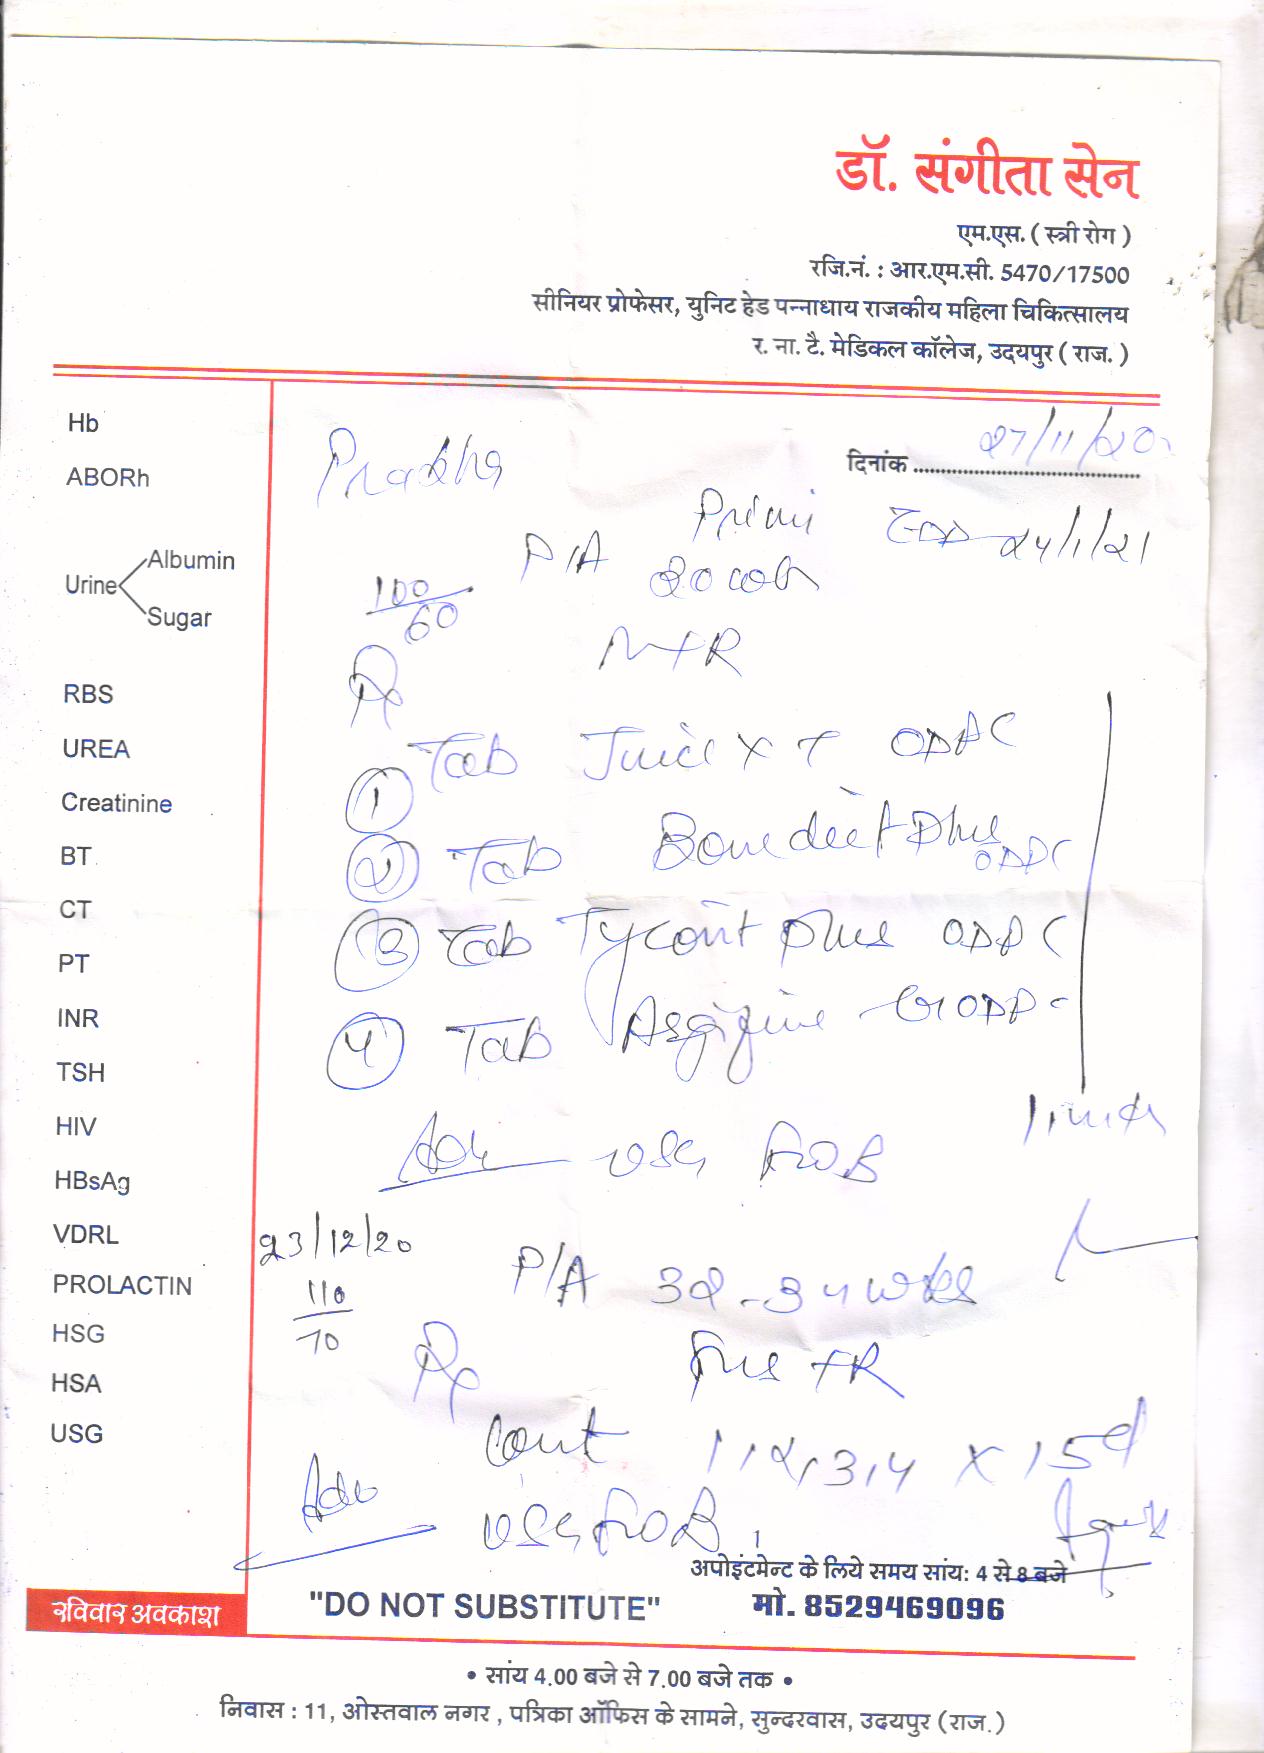 डॉ. संगीता सेन
एम.एस. ( स्त्री रोग )
रजि.नं. : आर.एम.सी. 5470/17500
सीनियर प्रोफेसर, युनिट हेड पन्नाधाय राजकीय महिला चिकित्सालय
र. ना. टै. मेडिकल कॉलेज, उदयपुर ( राज. )
Hb
ABORh
Urine Albumin
Sugar
RBS
UREA
Creatinine
BT
CT
PT
INR
TSH
HIV
HBsAg
VDRL
PROLACTIN
HSG
HSA
USG
दिनांक 27/11/20
Primi EDD 24/1/21
P/A
100/60
Rx
① Tab OD PC
② Tab Plus OD PC
③ Tab Plus OD PC
④ Tab
Adv USG
23/12/20
110/70 P/A 32-34 wks
Rx
Cont 1,2,3,4 x 15d
Adv USG
अपोइंटमेन्ट के लिये समय सांय: 4 से 8 बजे
रविवार अवकाश "DO NOT SUBSTITUTE" मो. 8529469096
• सांय 4.00 बजे से 7.00 बजे तक •
निवास : 11, ओस्तवाल नगर , पत्रिका ऑफिस के सामने, सुन्दरवास, उदयपुर (राज.)